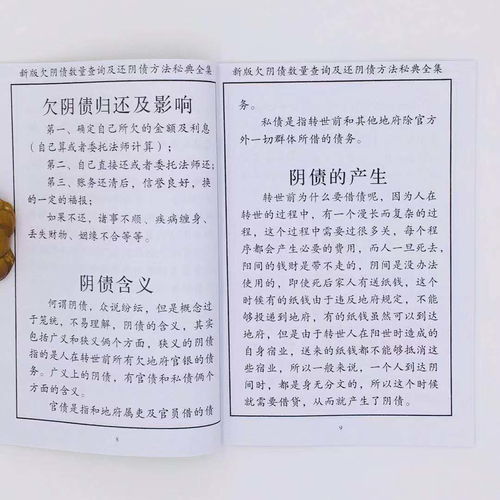 新版欠阴债数量查询及还阴债方法秘典全集
欠阴债归还及影响
第一、确定自己所欠的金额及利息
（自己算或者委托法师计算）；
第二、自己直接还或者委托法师还；
第三、账务还清后，信誉良好，换
的一定的福报；
如果不还，诸事不顺、疾病缠身、
丢失财物、姻缘不合等等。
阴债含义
何谓阴债，众说纷纭，但是概念过
于笼统，不易理解，阴债的含义，其实
包括广义和狭义俩个方面，狭义的阴债
指的是人在转世前所有欠地府官银的债
务。广义上的阴债，有官债和私债俩个
方面的含义。
官债是指和地府属吏及官员借的债
8
新版欠阴债数量查询及还阴债方法秘典全集
务。
私债是指转世前和其他地府除官方
外一切群体所借的债务。
阴债的产生
转世前为什么要借债呢，因为人在
转世的过程中，有一个漫长而复杂的过
程，这个过程中需要过很多关，每个程
序都会产生必要的费用，而人一旦死去，
阳间的钱财是带不走的，阴间是没办法
使用的，即使死后家人有送纸钱，这个
时候有的纸钱由于违反地府规定，不能
够投递到地府，有的纸钱虽然可以到达
地府，但是由于转世人在阳世时造成的
自身宿业，送来的纸钱都不能够抵消这
些宿业，所以一般来说，一个人到达阴
间时，都是身无分文的，所以这个时候
就需要借贷，从而就产生了阴债。
9